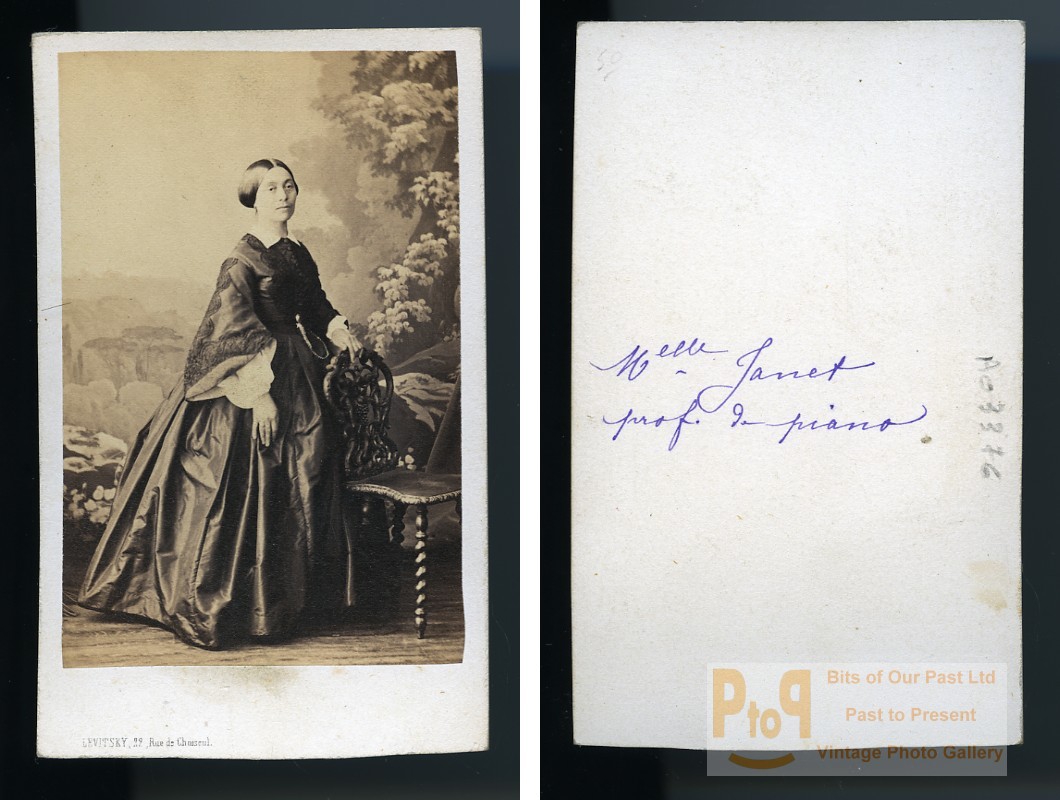 LEVITSKY, 22, Rue de Choiseul.
59
Melle Janet
prof. de piano
Ac 3376
PtoP
Bits of Our Past Ltd
Past to Present
Vintage Photo Gallery